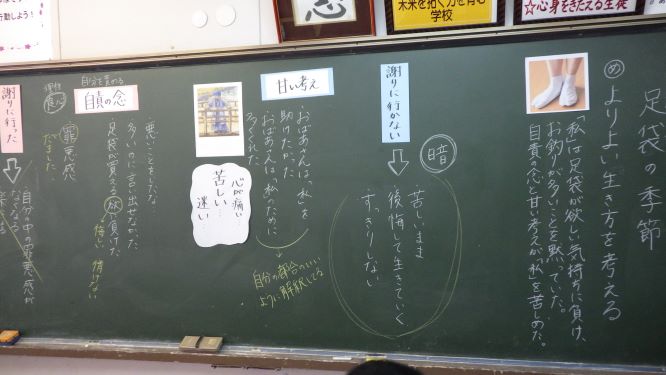 行動しよう！
未来を拓く力を育む
学校
☆心身をきたえる生徒
足袋の季節
め よりよい生き方を考える
「私」は足袋が欲しい気持ちに負け、
お釣りが多いことを黙っていた。
自責の念と甘い考えが「私」を苦しめた。
謝りに行かない
暗
苦しいまま
後悔して生きていく
すっきりしない
甘い考え
・おばあさんは「私」を
助けたかった
・おばあさんは「私」のために
多くくれた
自分の都合のいい
ように解釈してる
心が痛い
苦しい…
迷い…
自分を責める
自責の念
・悪いことをしたな
・多いのに言い出せなかった
・足袋が買える 欲に負けた
悔しい 情けない
罪悪感
だました
謝りに行った
自分の中の罪悪感が